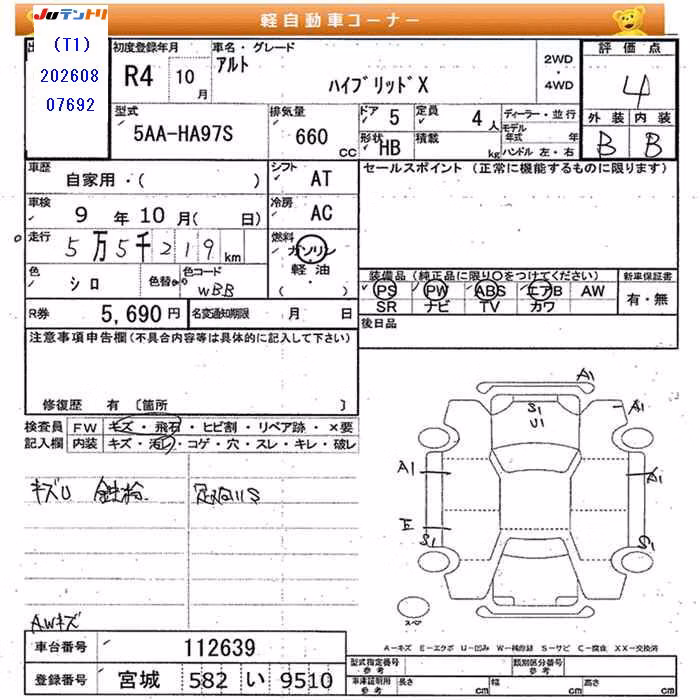 Juテントリ
軽自動車コーナー
(T1)
202608
07692
初度登録年月
R4 10月
車名・グレード
アルト
ハイブリッドX
2WD
4WD
評価点
4
外装 内装
B B
型式
5AA-HA97S
排気量
660 CC
ドア 5
定員 4人
形状 HB
積載 kg
ディーラー・並行
モデル年式 年
ハンドル 左・右
車歴
自家用・( )
シフト AT
セールスポイント(正常に機能するものに限ります)
車検
9年10月( 日)
冷房 AC
走行
5万5千219km
燃料
ガソリン
軽油
( )
色
シロ
色替
色コード
WBB
装備品(純正品に限り○をつけてください)
PS PW ABS エアB AW
SR ナビ TV カワ
新車保証書
有・無
R券 5,690円
名変通知期限 月 日
後日品
注意事項申告欄(不具合内容等は具体的に記入して下さい)
修復歴 有 〔箇所 〕
検査員記入欄
FW キズ・飛石・ヒビ割・リペア跡・×要
内装 キズ・汚レ・コゲ・穴・スレ・キレ・破レ
キズU
AWキズ
A1
S1
U1
A1
A1
A1
E
S1
S1
スペア
A-キズ E-エクボ U-凹み W-補修跡 S-サビ C-腐食 XX-交換済
車台番号 112639
登録番号 宮城 582 い 9510
型式指定番号 参考
類別区分番号 参考
車庫証明用 参考
長さ cm 幅 cm 高さ cm